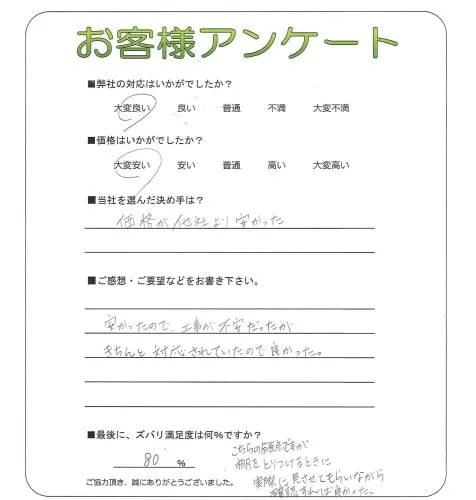 お客様アンケート
■弊社の対応はいかがでしたか？
大変良い 良い 普通 不満 大変不満
■価格はいかがでしたか？
大変安い 安い 普通 高い 大変高い
■当社を選んだ決め手は？
価格が他社より安かった
■ご感想・ご要望などをお書き下さい。
安かったので、工事が不安だったが
きちんと対応されていたので良かった。
■最後に、ズバリ満足度は何%ですか？
80 %
こちらの ですが
棚をとりつけるときに
実際に見させてもらいながら
確認すれば良かった。
ご協力頂き、誠にありがとうございました。